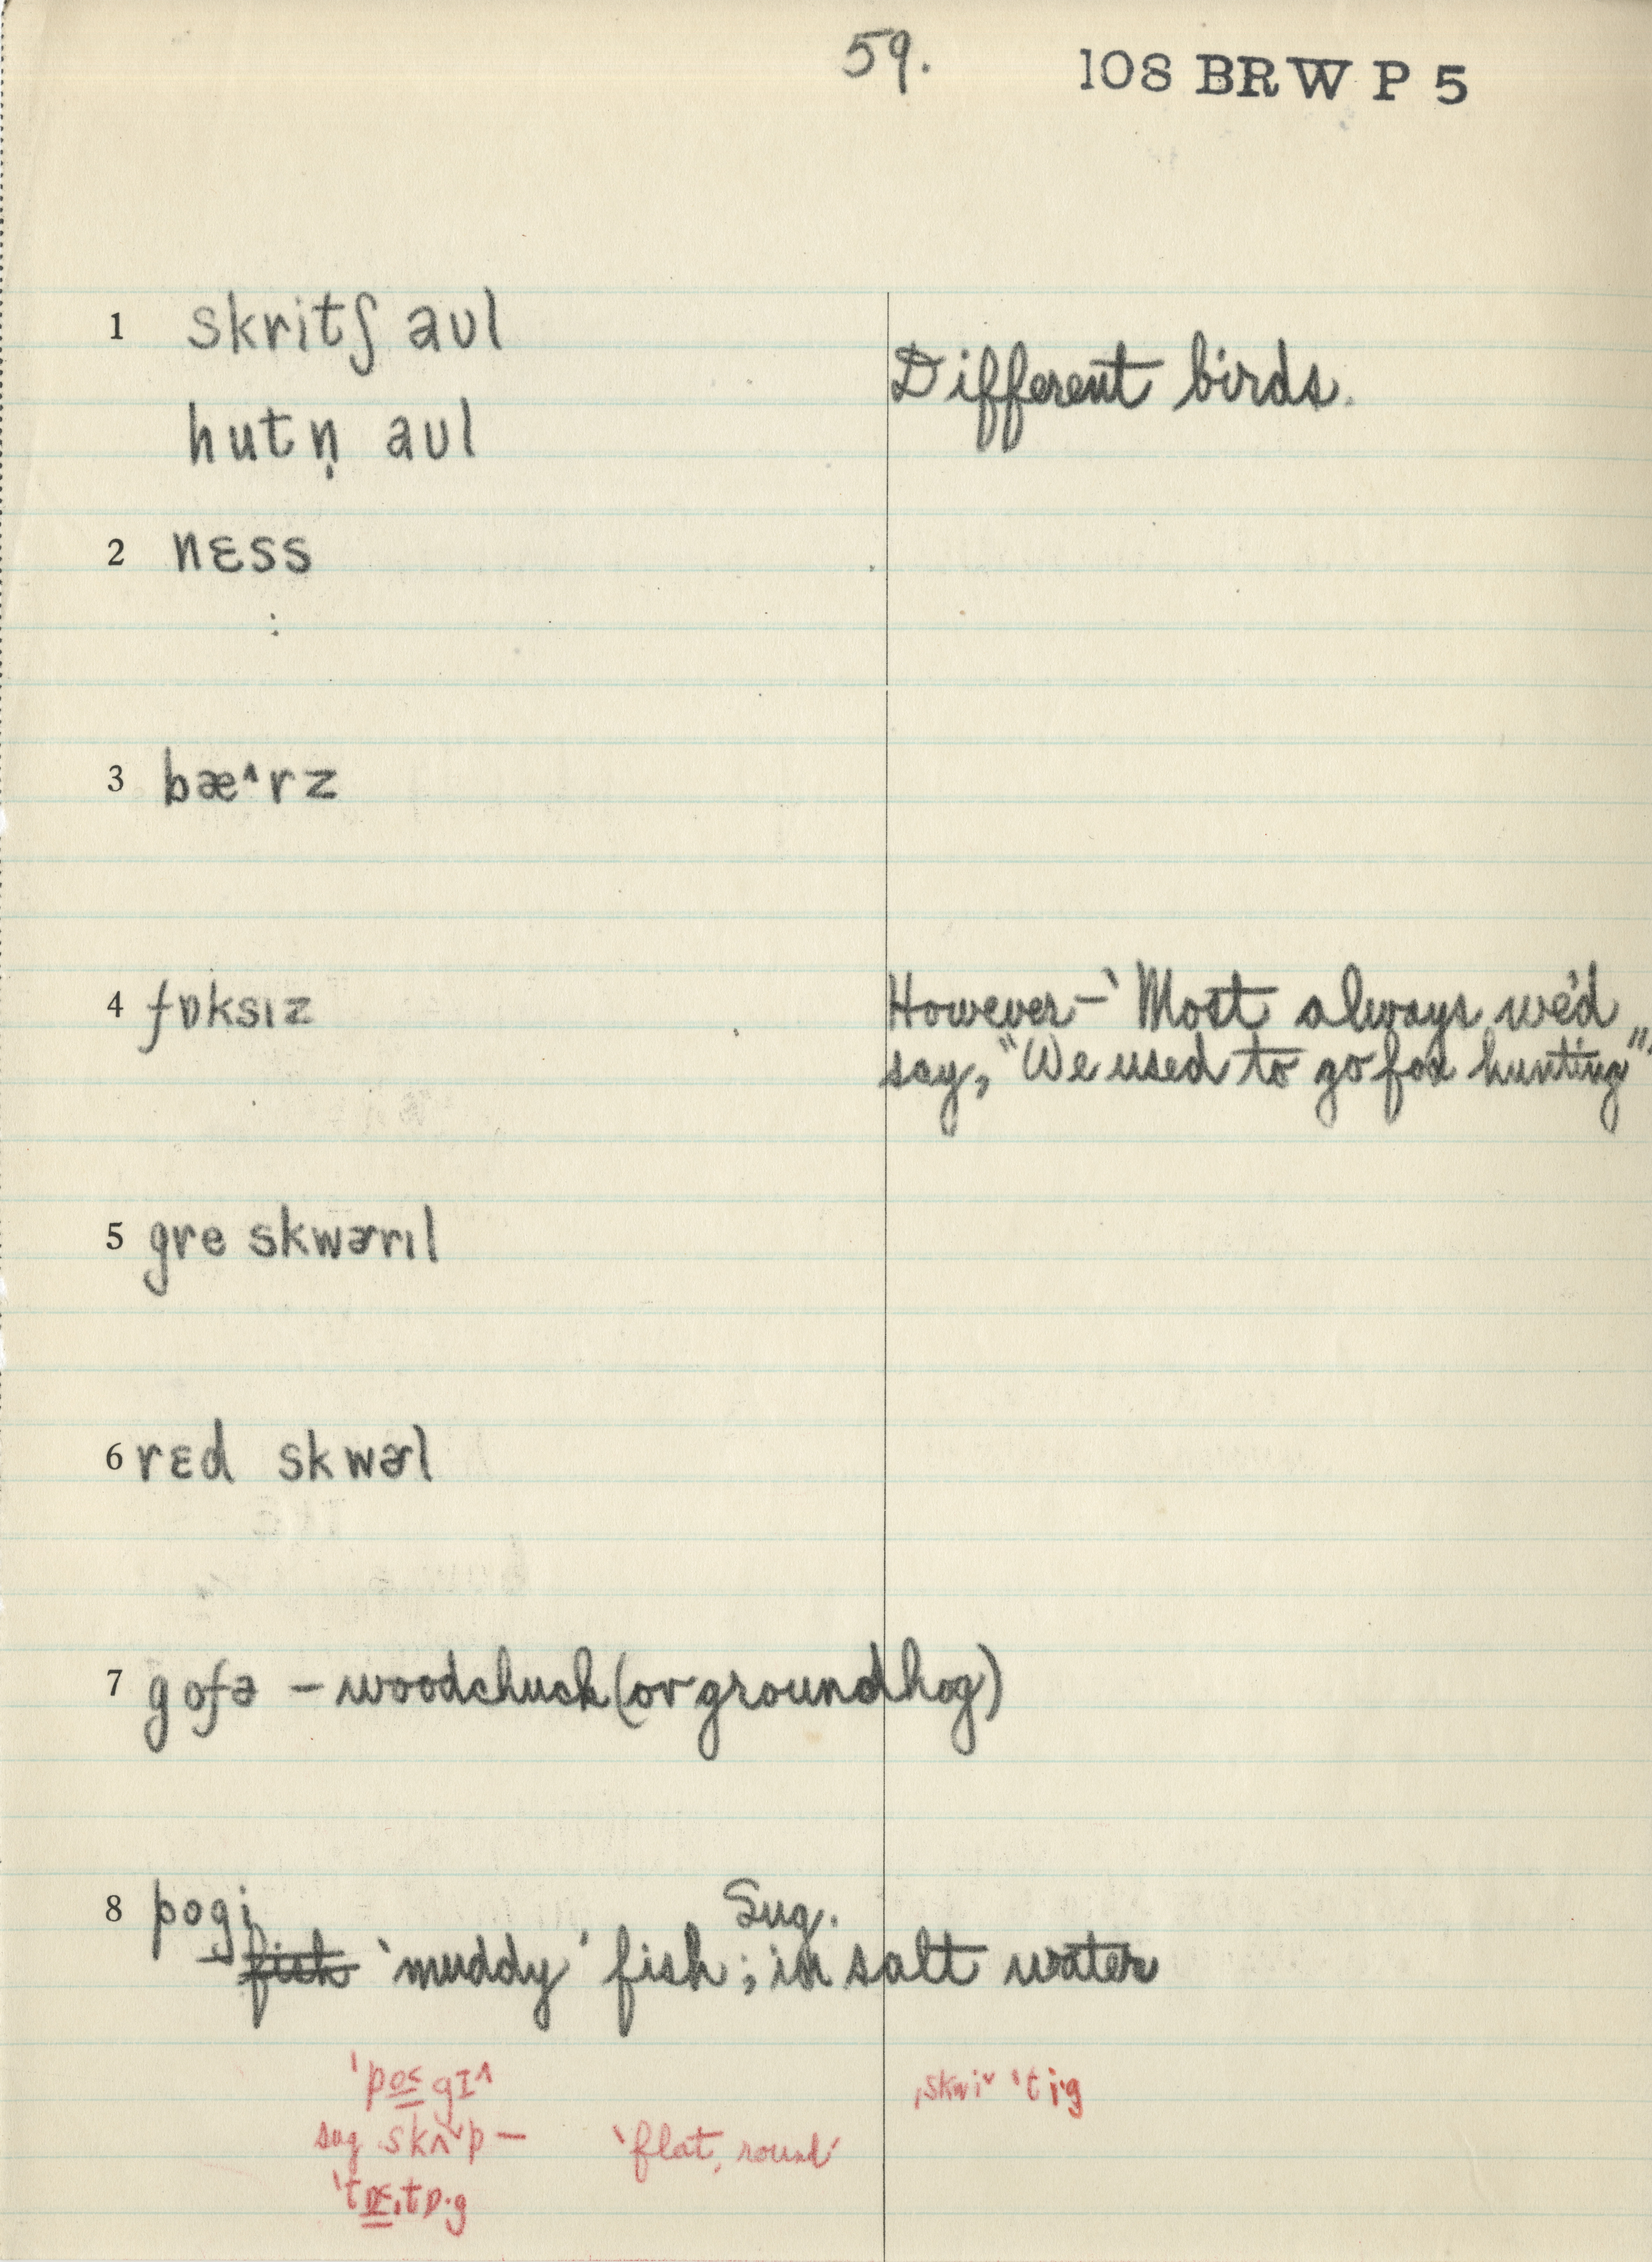 59. 108 BRW P 5
1 skritʃ aʊl
Different birds.
hutn̩ aʊl
2 nɛss
3 bæ^rz
4 fɒksɪz
However—‘Most always we'd
say, "We used to go fox hunting".
5 gre skwɚrɪl
6 rɛd skwɚl
7 gofə – woodchuck (or groundhog)
8 pogi
Sug.
fish ‘muddy’ fish; in salt water
ˈpo̲˂gɪ^
ˌskwiˇ ˈtiˑg
sug skʌˇp –
‘flat, round’